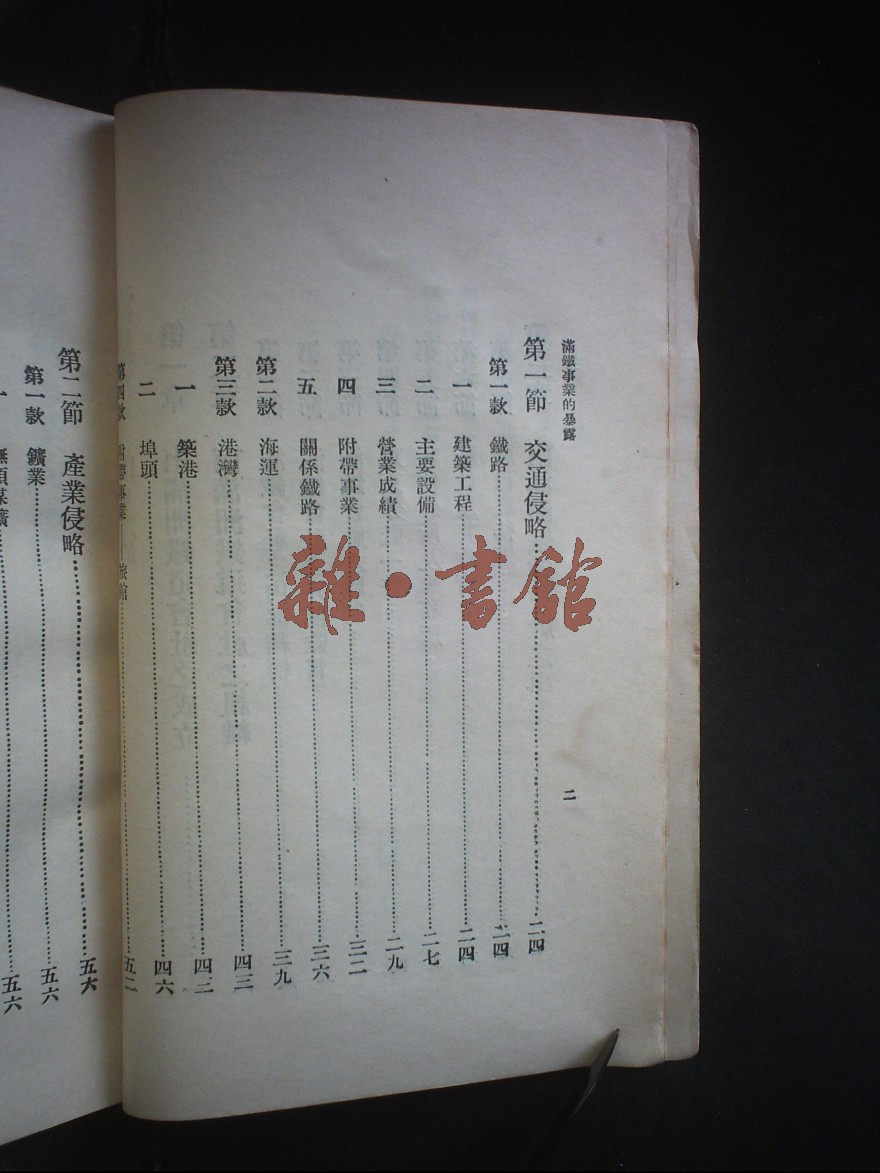 滿鐵事業的暴露
二
第一節 交通侵略 二四
第一款 鐵路 二四
一 建築工程 二四
二 主要設備 二七
三 營業成績 二九
四 附帶事業 三二
五 關係鐵路 三六
第二款 海運 三九
第三款 港灣 四三
一 築港 四三
二 埠頭 四六
第四款 附帶事業——旅館 五二
第二節 產業侵略 五六
第一款 鑛業 五六
一 撫順煤鑛 五六
雜·書館